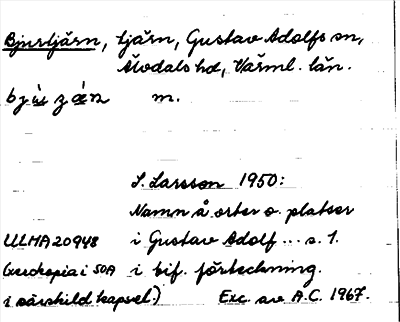 Bjurtjärn, tjärn, Gustav Adolfs sn,
Älvdals hd, Värml. län.
m.
S. Larsson 1950:
Namn å orter o. platser
ULMA 20948 i Gustav Adolf ... s. 1.
(xerokopia i SOA i bif. förteckning.
i särskild kapsel) Exc. av A.C. 1967.